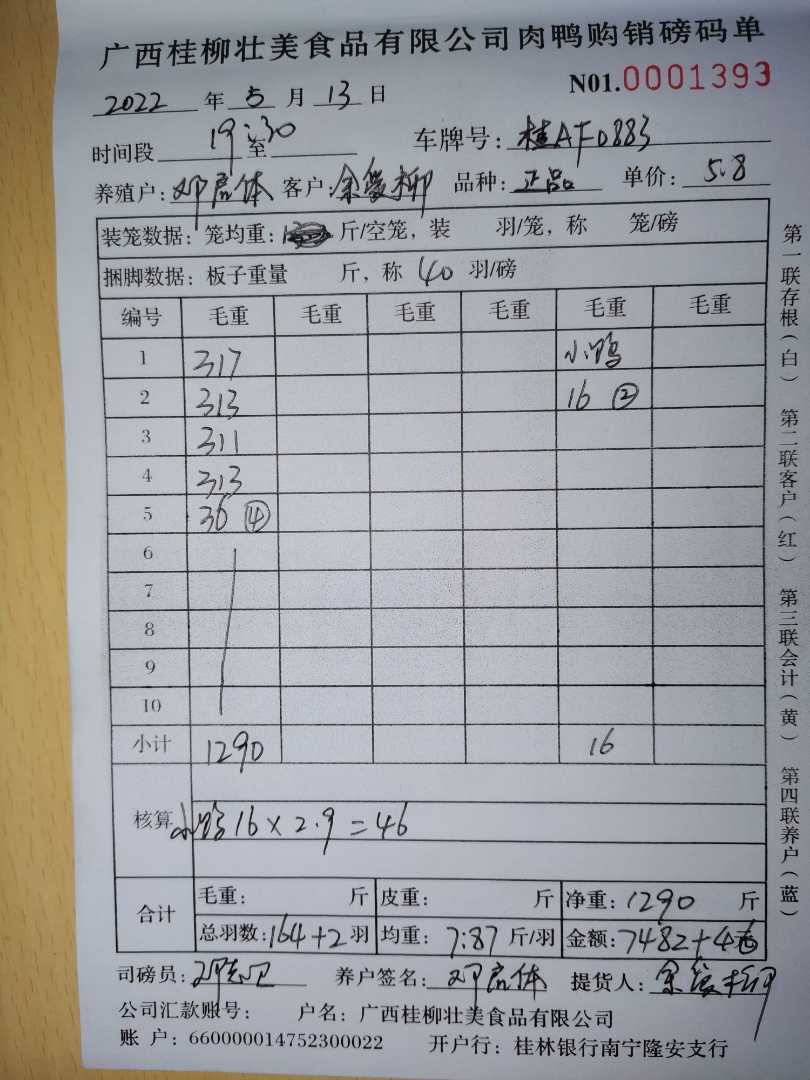 广西桂柳壮美食品有限公司肉鸭购销磅码单
N01.0001393
2022 年 5 月 13 日
时间段 19:30 至 车牌号: 桂AF0883
养殖户: 邓启体 客户: 余爱柳 品种: 正品 单价: 5.8
装笼数据: 笼均重: 斤/空笼, 装 羽/笼, 称 笼/磅
捆脚数据: 板子重量 斤, 称 40 羽/磅
编号 毛重 毛重 毛重 毛重 毛重 毛重
1 317 小鸭
2 313 16 ②
3 311
4 313
5 36 ④
6
7
8
9
10
小计 1290 16
核算 小鸭16×2.9=46
合计 毛重: 斤 皮重: 斤 净重: 1290 斤
总羽数: 164+2 羽 均重: 7.87 斤/羽 金额: 7482+46
司磅员: 养户签名: 邓启体 提货人: 余爱柳
公司汇款账号: 户名: 广西桂柳壮美食品有限公司
账 户: 660000014752300022 开户行: 桂林银行南宁隆安支行
第一联存根(白) 第二联客户(红) 第三联会计(黄) 第四联养户(蓝)